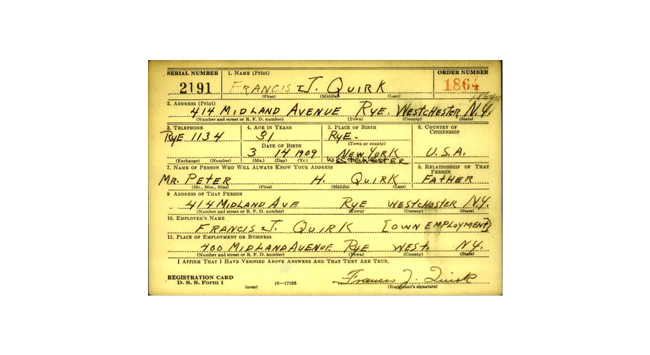 SERIAL NUMBER 1. NAME (Print) ORDER NUMBER
2191 FRANCIS J. QUIRK 1864
(First) (Middle) (Last)
2. ADDRESS (Print)
414 MIDLAND AVENUE RYE. WESTCHESTER N.Y.
(Number and street or R. F. D. number) (Town) (County) (State)
3. TELEPHONE 4. AGE IN YEARS 5. PLACE OF BIRTH 6. COUNTRY OF CITIZENSHIP
RYE 1134 31 RYE-
DATE OF BIRTH (Town or county)
3 14 1909 NEW YORK U.S.A.
(Exchange) (Number) (Mo.) (Day) (Yr.) WESTCHESTER
7. NAME OF PERSON WHO WILL ALWAYS KNOW YOUR ADDRESS 8. RELATIONSHIP OF THAT PERSON
MR. PETER H. QUIRK FATHER
(Mr., Mrs., Miss) (First) (Middle) (Last)
9. ADDRESS OF THAT PERSON
414 MIDLAND AVE RYE WESTCHESTER N.Y.
(Number and street or R. F. D. number) (Town) (County) (State)
10. EMPLOYER'S NAME
FRANCIS J. QUIRK [OWN EMPLOYMENT]
11. PLACE OF EMPLOYMENT OR BUSINESS
400 MIDLAND AVENUE RYE WEST. N.Y.
(Number and street or R. F. D. number) (Town) (County) (State)
I AFFIRM THAT I HAVE VERIFIED ABOVE ANSWERS AND THAT THEY ARE TRUE.
REGISTRATION CARD
D. S. S. Form 1 (over) 16-17105 Francis J. Quirk
(Registrant's signature)